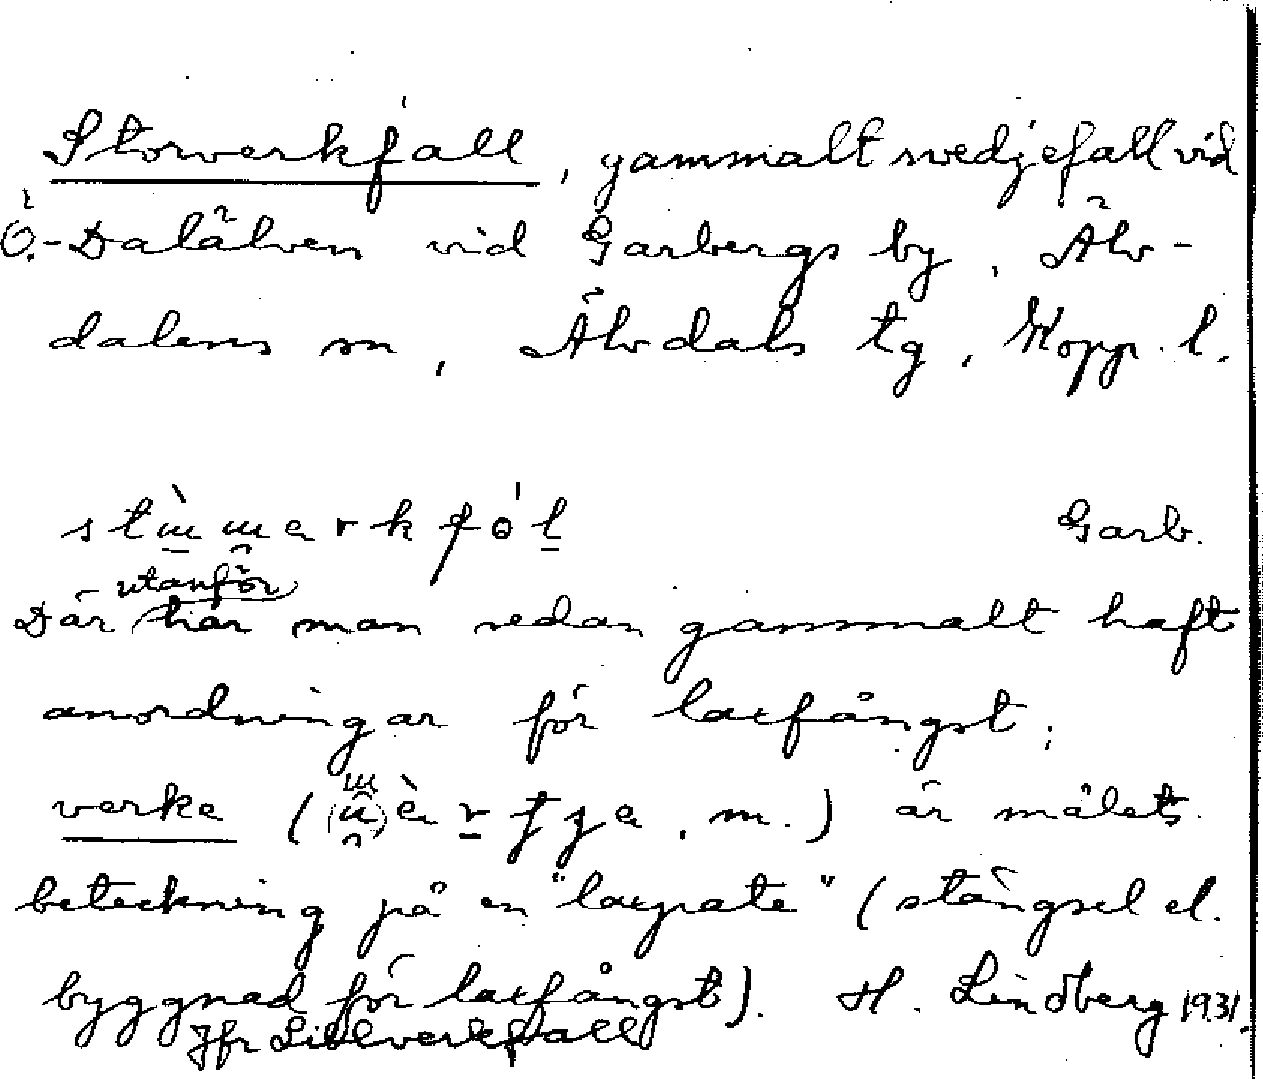 Storverkfall, gammalt svedjefall vid
Ö.-Dalälven vid Garbergs by, Älv-
dalens sn, Älvdals tg, Kopp. l.
Garb.
utanför
Där har man sedan gammalt haft
anordningar för laxfångst;
verke är målets
beteckning på en "laxpate" (stängsel el.
byggnad för laxfångst). H. Lindberg 1931.
Jfr Lillverkfall